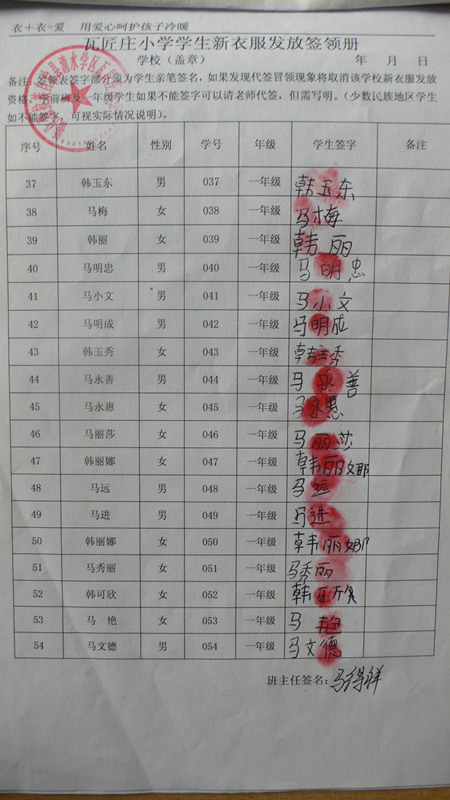 衣+衣=爱 用爱心呵护孩子冷暖
瓦匠庄小学学生新衣服发放签领册
学校（盖章） 年 月 日
备注：签领表签字部分须为学生亲笔签名，如果发现代签冒领现象将取消该学校新衣服发放
资格。学前班及一年级学生如果不能签字可以请老师代签，但需写明。（少数民族地区学生
如不能签字，可视实际情况说明）。
序号 姓名 性别 学号 年级 学生签字 备注
37 韩玉东 男 037 一年级 韩玉东
38 马梅 女 038 一年级 马梅
39 韩丽 女 039 一年级 韩丽
40 马明忠 男 040 一年级 马明忠
41 马小文 男 041 一年级 马小文
42 马明成 男 042 一年级 马明成
43 韩玉秀 女 043 一年级 韩玉秀
44 马永善 男 044 一年级 马永善
45 马永惠 女 045 一年级 马永惠
46 马丽莎 女 046 一年级 马丽莎
47 韩丽娜 女 047 一年级 韩丽娜
48 马远 男 048 一年级 马远
49 马进 男 049 一年级 马进
50 韩丽娜 女 050 一年级 韩丽娜
51 马秀丽 女 051 一年级 马秀丽
52 韩可欣 女 052 一年级 韩可欣
53 马 艳 女 053 一年级 马艳
54 马文德 男 054 一年级 马文德
班主任签名：马得祥